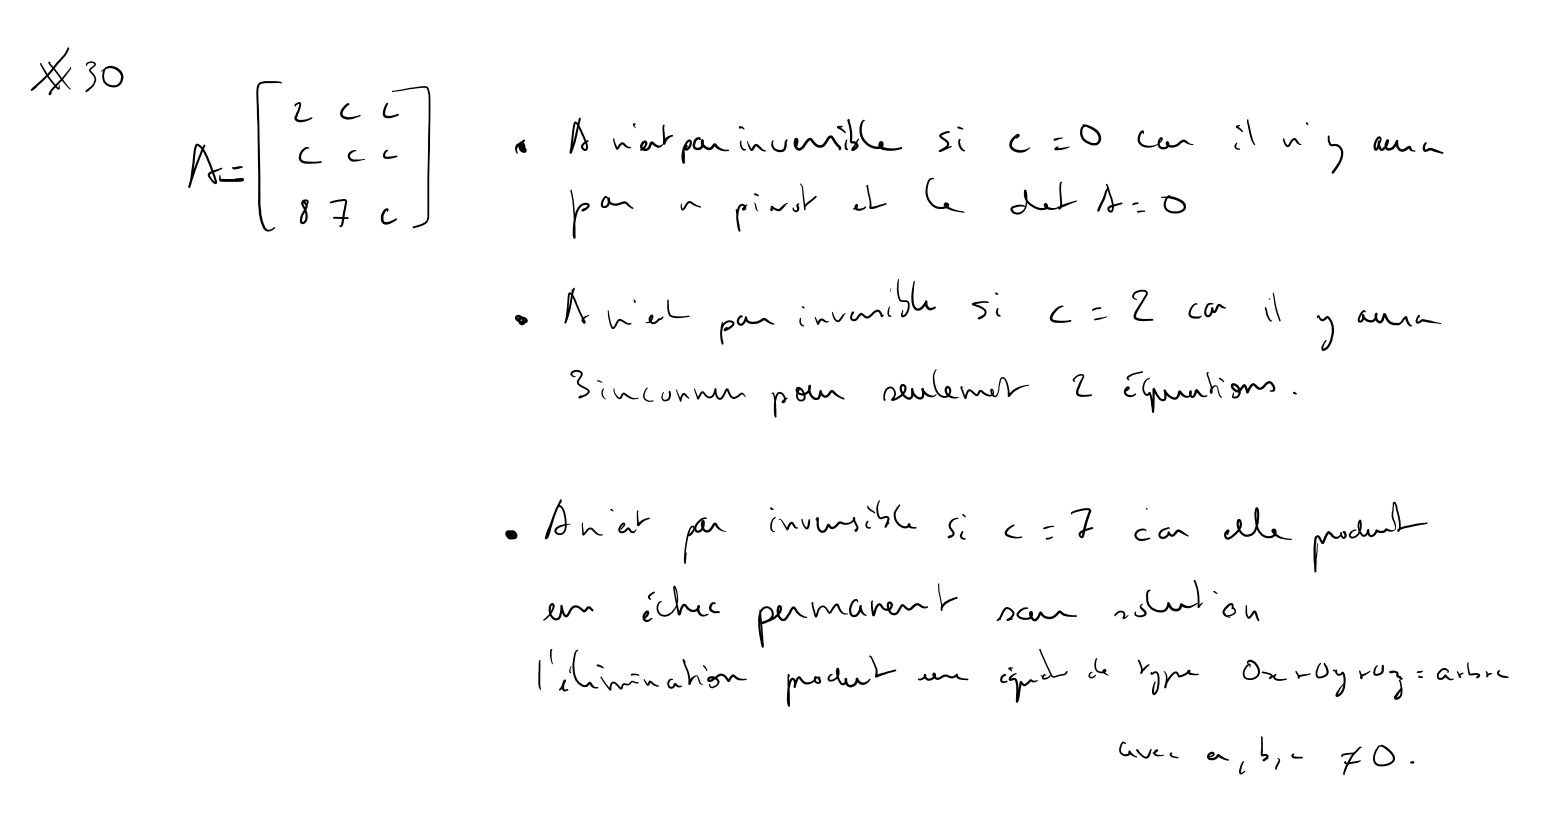 30
A = [ 2 c c
c c c
8 7 c ]
• A n'est pas inversible si c = 0 car il n'y aura
pas n pivot et le det A = 0
• A n'est pas inversible si c = 2 car il y aura
3 inconnus pour seulement 2 équations.
• A n'est pas inversible si c = 7 car elle produit
un échec permanent sans solution
l'élimination produit une équat de type 0x+0y+0z = a+b+c
avec a, b, c ≠ 0.